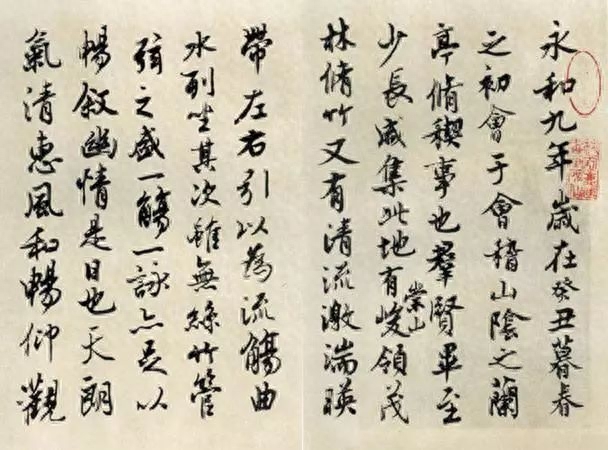 永和九年歲在癸丑暮春
之初會于會稽山陰之蘭
亭脩稧事也羣賢畢至
少長咸集此地有崇山峻領茂
林脩竹又有清流激湍暎
帶左右引以為流觴曲
水列坐其次雖無絲竹管
弦之盛一觴一詠亦足以
暢叙幽情是日也天朗
氣清惠風和暢仰觀